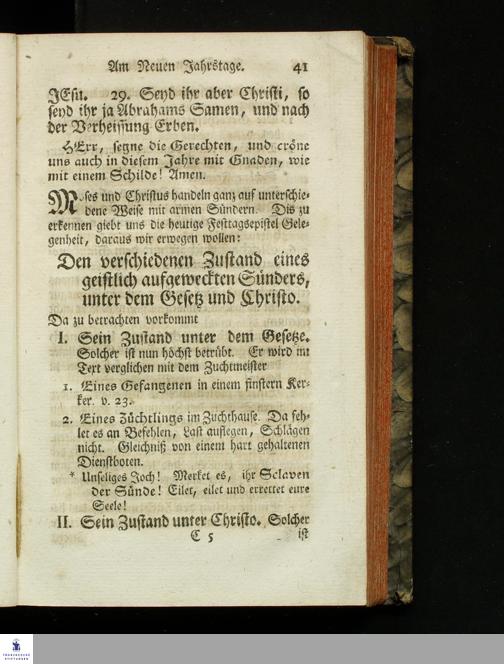 Am Neuen Jahrstage. 41
JEsu. 29. Seyd ihr aber Christi, so
seyd ihr ja Abrahams Samen, und nach
der Verheissung Erben.
HErr, segne die Gerechten, und cröne
uns auch in diesem Jahre mit Gnaden, wie
mit einem Schilde! Amen.
Moses und Christus handeln ganz auf unterschie-
dene Weise mit armen Sündern. Dis zu
erkennen giebt uns die heutige Festtagsepistel Gele-
genheit, daraus wir erwegen wollen:
Den verschiedenen Zustand eines
geistlich aufgeweckten Sünders,
unter dem Gesetz und Christo.
Da zu betrachten vorkommt
I. Sein Zustand unter dem Gesetze.
Solcher ist nun höchst betrübt. Er wird im
Text verglichen mit dem Zuchtmeister
1. Eines Gefangenen in einem finstern Ker-
ker. v. 23.
2. Eines Züchtlings im Zuchthause. Da feh-
let es an Befehlen, Last auflegen, Schlägen
nicht. Gleichniß von einem hart gehaltenen
Dienstboten.
* Unseliges Joch! Merket es, ihr Sclaven
der Sünde! Eilet, eilet und errettet eure
Seele!
II. Sein Zustand unter Christo. Solcher
C 5 ist